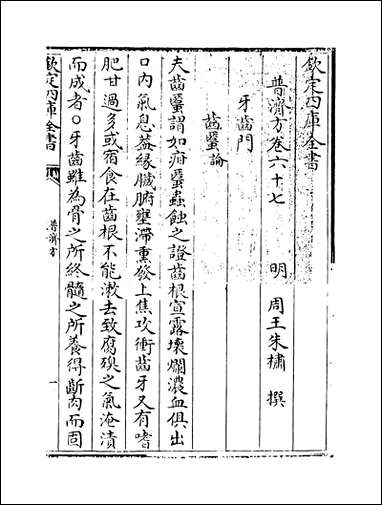 欽定四庫全書
普濟方卷六十七
明 周王朱橚 撰
牙齒門
齒䘌論
夫齒䘌謂如疳䘌蟲蝕之證齒根宣露壞爛濃血俱出
口内氣息蓋緣臟腑壅滯熏發上焦攻衝齒牙又有嗜
肥甘過多或宿食在齒根不能漱去致腐㱙之氣淹漬
而成者○牙齒雖為骨之所終髓之所養得齗肉而固
欽定四庫全書
普濟方
一